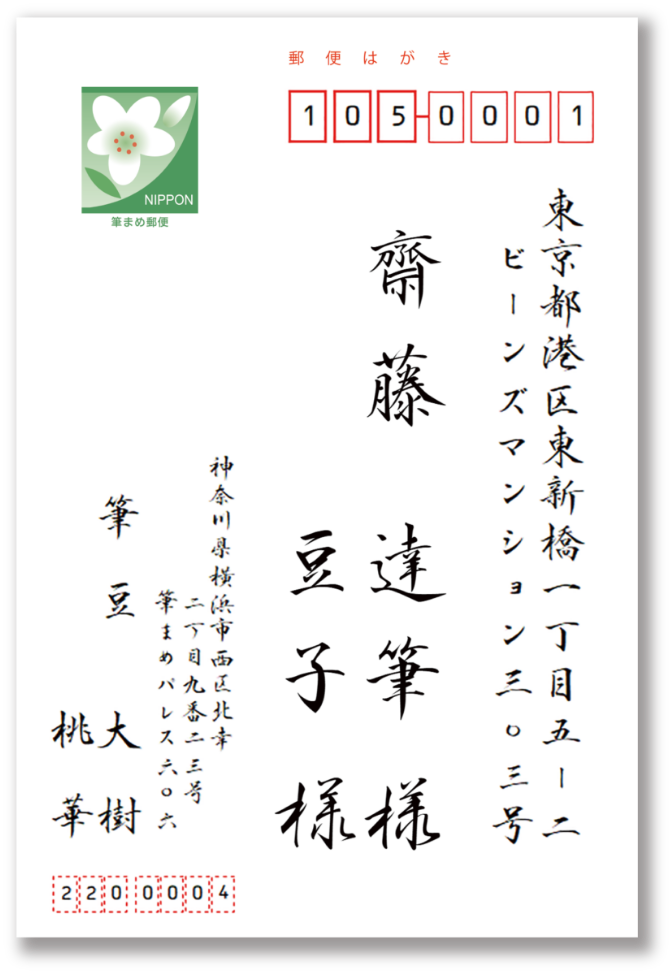 郵便はがき
105-0001
東京都港区東新橋一丁目五ー二
ビーンズマンション三〇三号
齋藤 達筆様
豆子様
NIPPON
筆まめ郵便
神奈川県横浜市西区北幸
二丁目九番二三号
筆まめパレス六〇六
筆豆 大樹
桃華
2200004